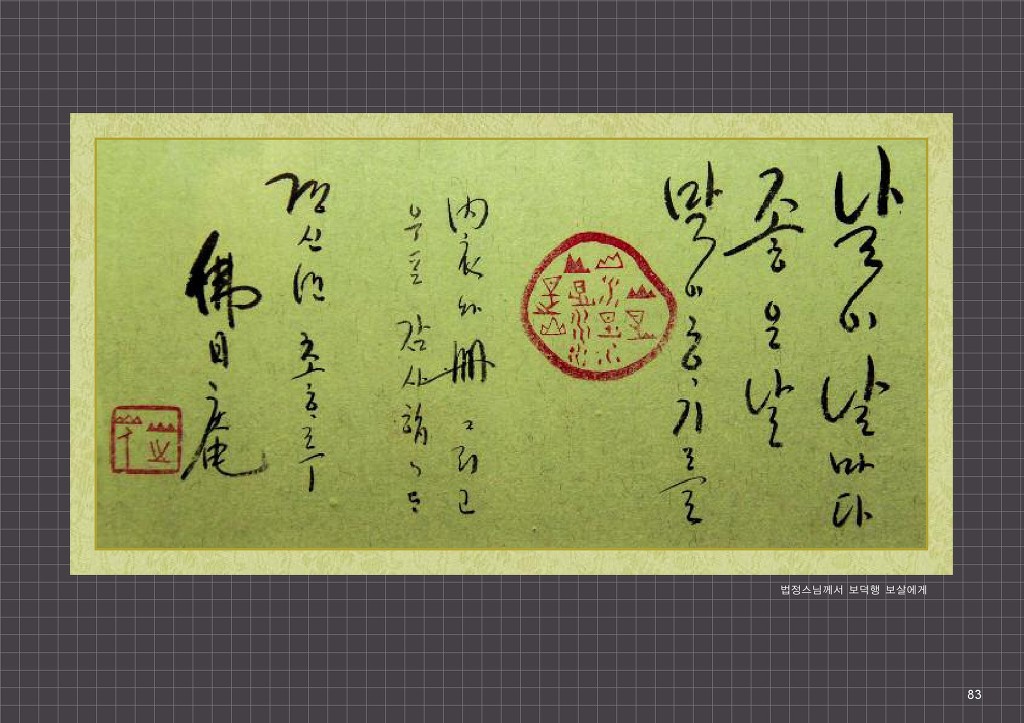 날이 날마다
좋은 날
맞이하기를
內衣와 冊 그리고
우표 감사
경신년 초하루
佛日庵
법정스님께서 보덕행 보살에게
83